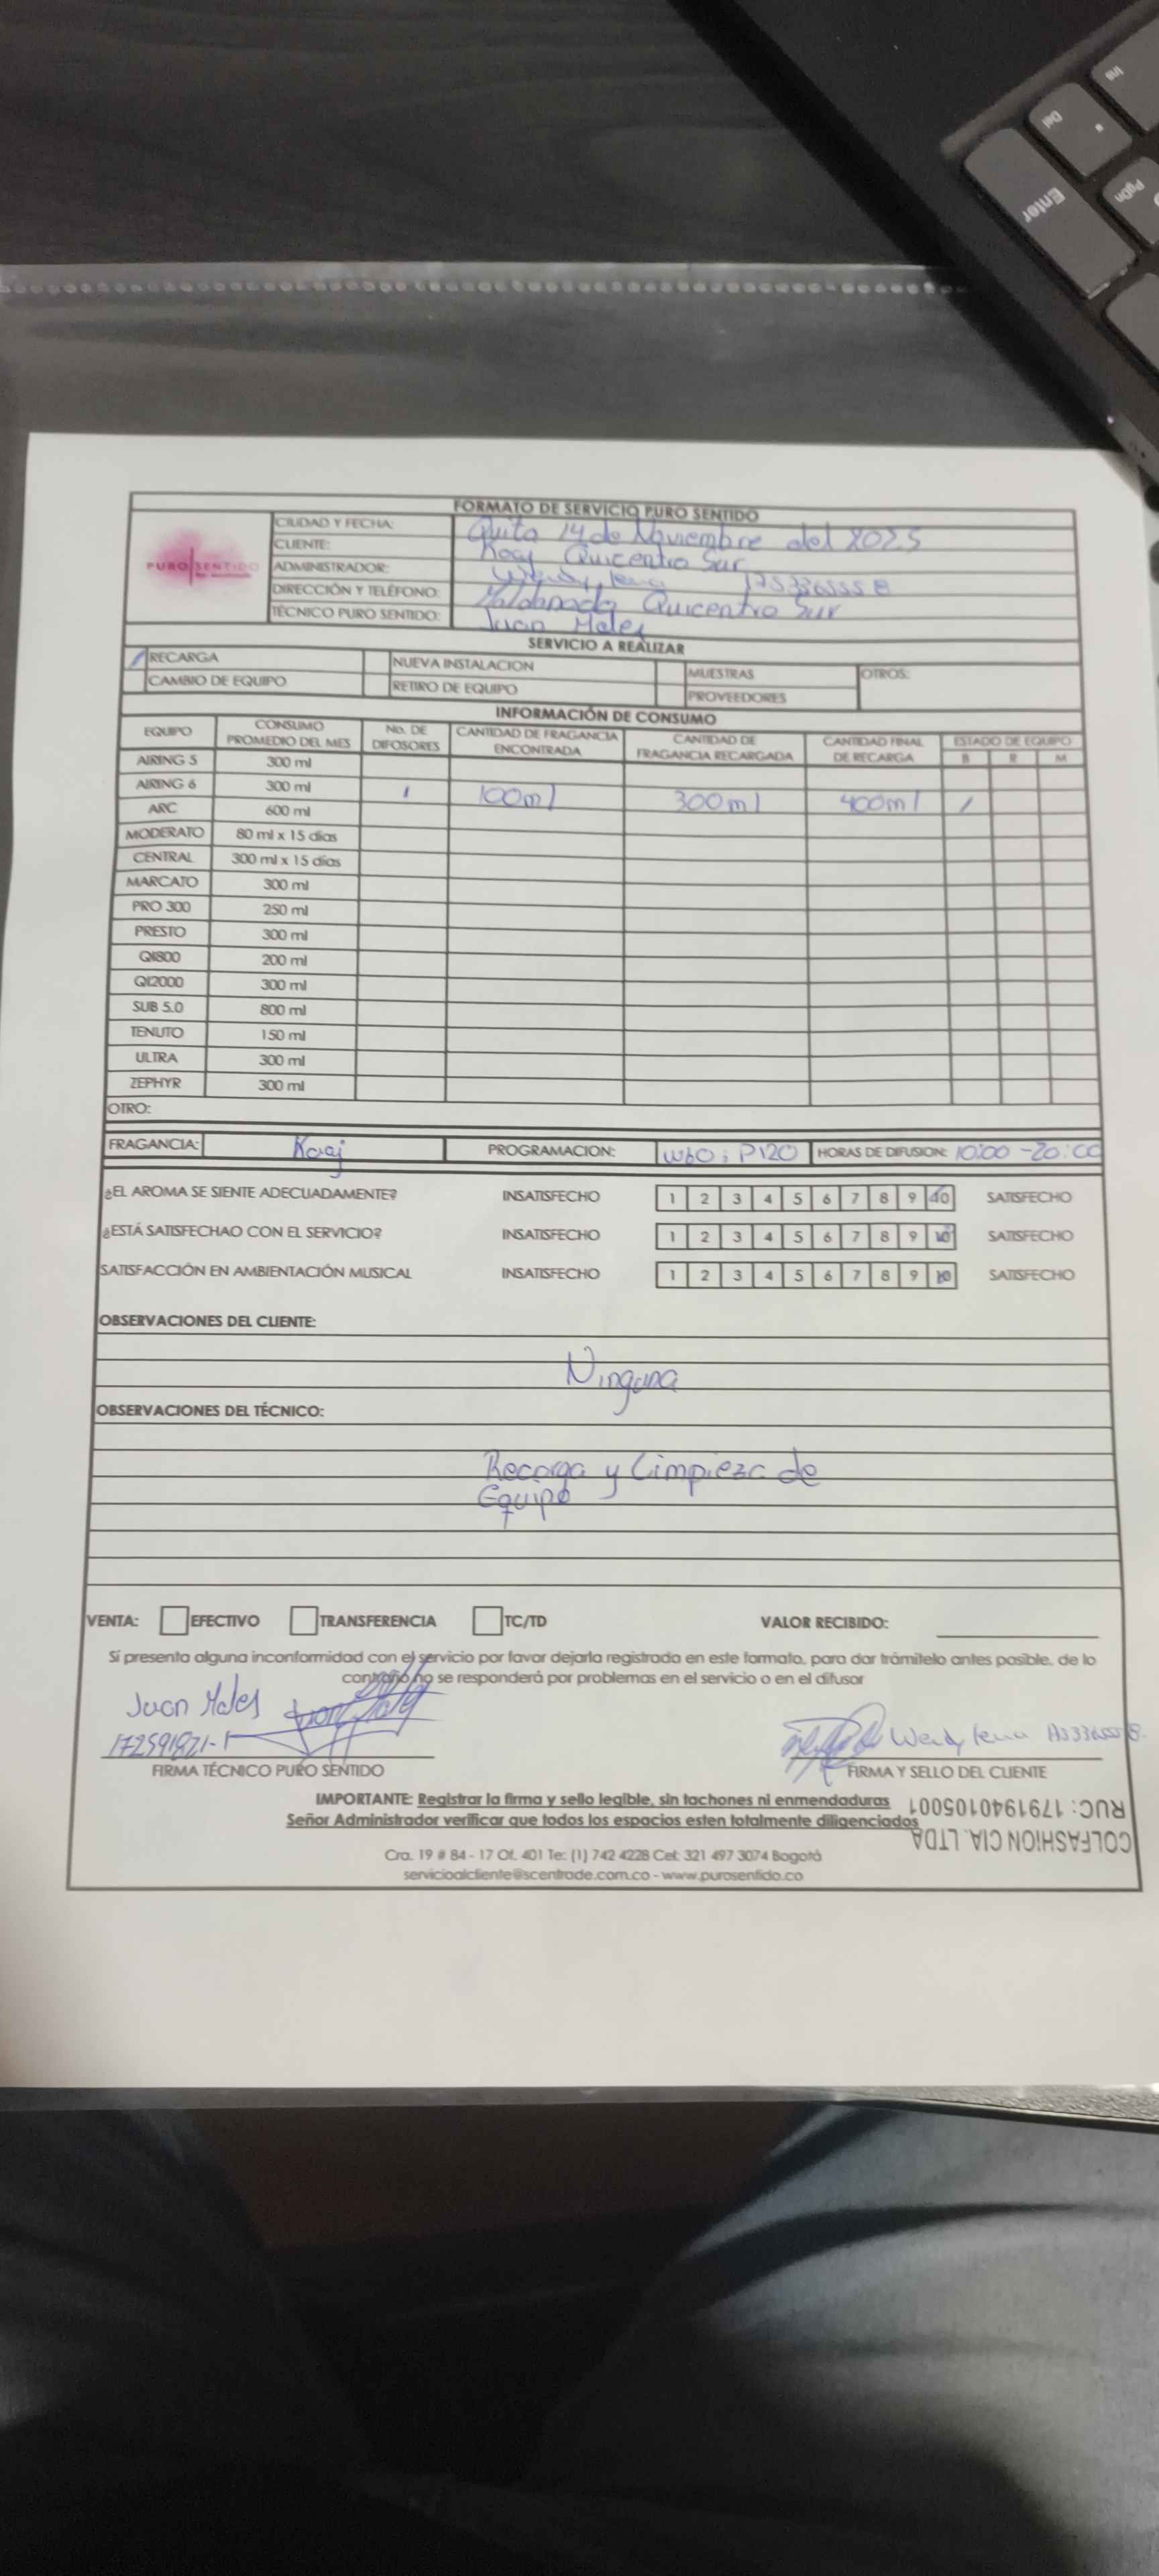 FORMATO DE SERVICIO PURO SENTIDO
PURO SENTIDO
CIUDAD Y FECHA: Quito 14 de Noviembre del 2025
CLIENTE: Koaj Quicentro Sur
ADMINISTRADOR: Wendy 1753365558
DIRECCIÓN Y TELÉFONO: Maldonado Quicentro Sur
TÉCNICO PURO SENTIDO: Juan Males
SERVICIO A REALIZAR
/ RECARGA NUEVA INSTALACION MUESTRAS OTROS:
CAMBIO DE EQUIPO RETIRO DE EQUIPO PROVEEDORES
INFORMACIÓN DE CONSUMO
EQUIPO CONSUMO PROMEDIO DEL MES No. DE DIFOSORES CANTIDAD DE FRAGANCIA ENCONTRADA CANTIDAD DE FRAGANCIA RECARGADA CANTIDAD FINAL DE RECARGA ESTADO DE EQUIPO B R M
AIRING 5 300 ml
AIRING 6 300 ml 1 100ml 300ml 400ml /
ARC 600 ml
MODERATO 80 ml x 15 días
CENTRAL 300 ml x 15 días
MARCATO 300 ml
PRO 300 250 ml
PRESTO 300 ml
QI800 200 ml
QI2000 300 ml
SUB 5.0 800 ml
TENUTO 150 ml
ULTRA 300 ml
ZEPHYR 300 ml
OTRO:
FRAGANCIA: Koaj PROGRAMACION: W60 ; P120 HORAS DE DIFUSION: 10:00 - 20:00
¿EL AROMA SE SIENTE ADECUADAMENTE? INSATISFECHO 1 2 3 4 5 6 7 8 9 10 SATISFECHO
¿ESTÁ SATISFECHAO CON EL SERVICIO? INSATISFECHO 1 2 3 4 5 6 7 8 9 10 SATISFECHO
SATISFACCIÓN EN AMBIENTACIÓN MUSICAL INSATISFECHO 1 2 3 4 5 6 7 8 9 10 SATISFECHO
OBSERVACIONES DEL CLIENTE:
Ninguna
OBSERVACIONES DEL TÉCNICO:
Recarga y Limpieza de
Equipo
VENTA: EFECTIVO TRANSFERENCIA TC/TD VALOR RECIBIDO:
Sí presenta alguna inconformidad con el servicio por favor dejarla registrada en este formato, para dar trámitelo antes posible, de lo
contraño no se responderá por problemas en el servicio o en el difusor
Juan Males
172591821-1
Wendy
FIRMA TÉCNICO PURO SENTIDO FIRMA Y SELLO DEL CLIENTE
IMPORTANTE: Registrar la firma y sello legible, sin tachones ni enmendaduras
Señor Administrador verificar que todos los espacios esten totalmente diligenciados
COLFASHION CIA. LTDA
RUC: 1791940105001
Cra. 19 # 84 - 17 Of. 401 Te: (1) 742 4228 Cel: 321 497 3074 Bogotá
servicioalcliente@scentrade.com.co - www.purosentido.co
Enter
Del
Ins
PgDn